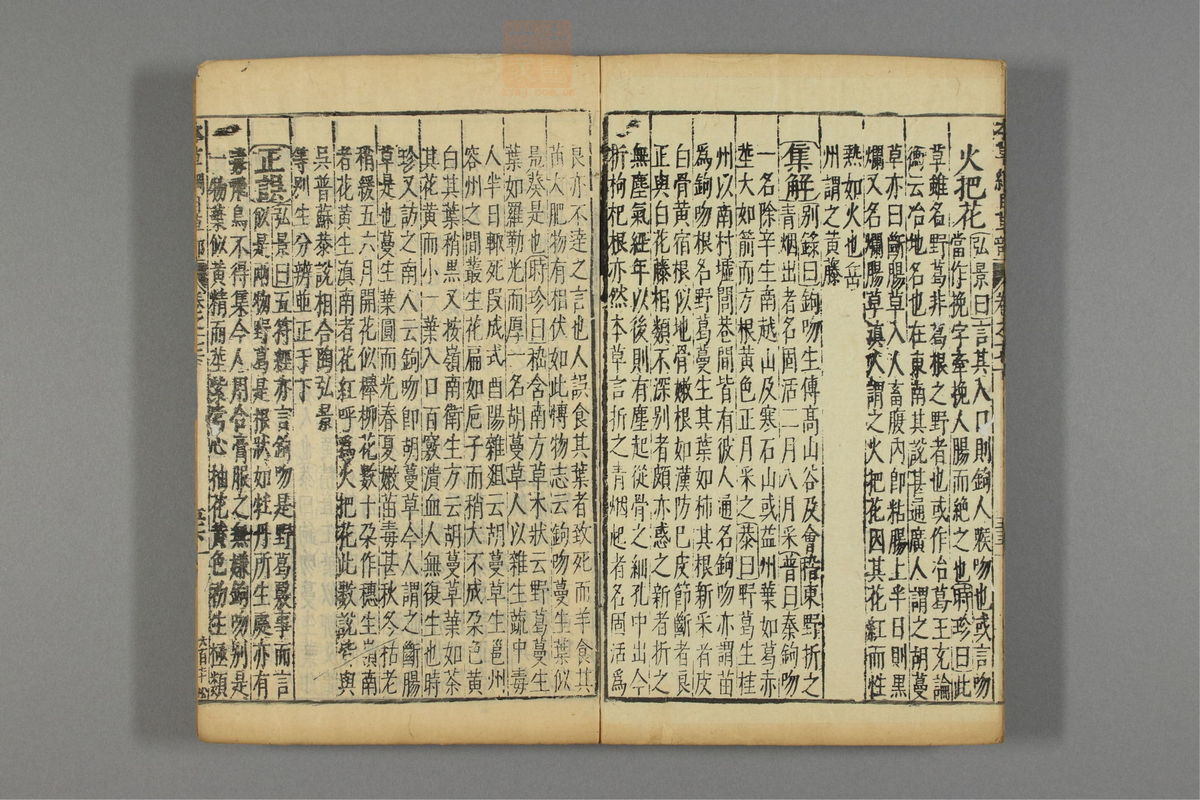 火把花弘景曰言其入口則鉤人喉吻也或言吻
當作挽字牽挽人腸而絶之也時珍曰此
草雖名野葛非葛根之野者也或作冶葛王充論
衡云冶地名也在東南其說甚通廣人謂之胡蔓
草亦曰斷腸草入人畜腹內即粘腸上半日則黑
爛又名爛腸草滇人謂之火把花因其花紅而性
熱如火也岳
州謂之黃藤
集解别錄曰鉤吻生傅高山谷及會稽東野折之
青烟出者名固活二月八月采普曰秦鉤吻
一名除辛生南越山及寒石山或益州葉如葛赤
莖大如箭而方根黃色正月采之恭曰野葛生桂
州以南村墟閭巷間皆有彼人通名鉤吻亦謂苗
爲鉤吻根名野葛蔓生其葉如柿其根新采者皮
白骨黃宿根似地骨嫩根如漢防已皮節斷者良
正與白花藤相類不深别者頗亦惑之新者折之
無塵氣經年以後則有塵起從骨之細孔中出今
折枸杞根亦然本草言折之青烟起者名固活爲
良亦不達之言也人誤食其葉者致死而羊食其
苗大肥物有相伏如此博物志云鉤吻蔓生葉似
鳧葵是也時珍曰嵇含南方草木狀云野葛蔓生
葉如羅勒光而厚一名胡蔓草人以雜生蔬中毒
人半日輒死叚成式酉陽雜爼云胡蔓草生邕州
容州之間叢生花扁如巵子而稍大不成朶色黃
白其葉稍黑又按嶺南衛生方云胡蔓草葉如茶
其花黃而小一葉入口百竅潰血人無復生也時
珍又訪之南人云鉤吻即胡蔓草今人謂之斷腸
草是也蔓生葉圓而光春夏嫩苗毒甚秋冬枯老
稍緩五六月開花似櫸柳花數十朶作穗生嶺南
者花黃生滇南者花紅呼爲火把花此數說皆與
吳普蘇恭說相合陶弘景
等别生分辨並正于下
正誤弘景曰五符經亦言鉤吻是野葛覈事而言
似是兩物野葛是根狀如牡丹所生處亦有
毒飛鳥不得集今人用合膏服之無嫌鉤吻别是
一物葉似黃精而莖紫當心抽花黃色初生極類